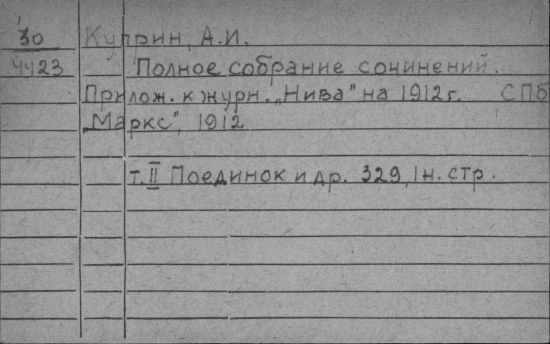 30 Куприн, А.И.
4423 Полное собрание сочинений.
Прилож. к журн. „Нива" на 1912 г. СПб
„Маркс", 1912
т. II Поединок и др. 329, 1 н. стр.